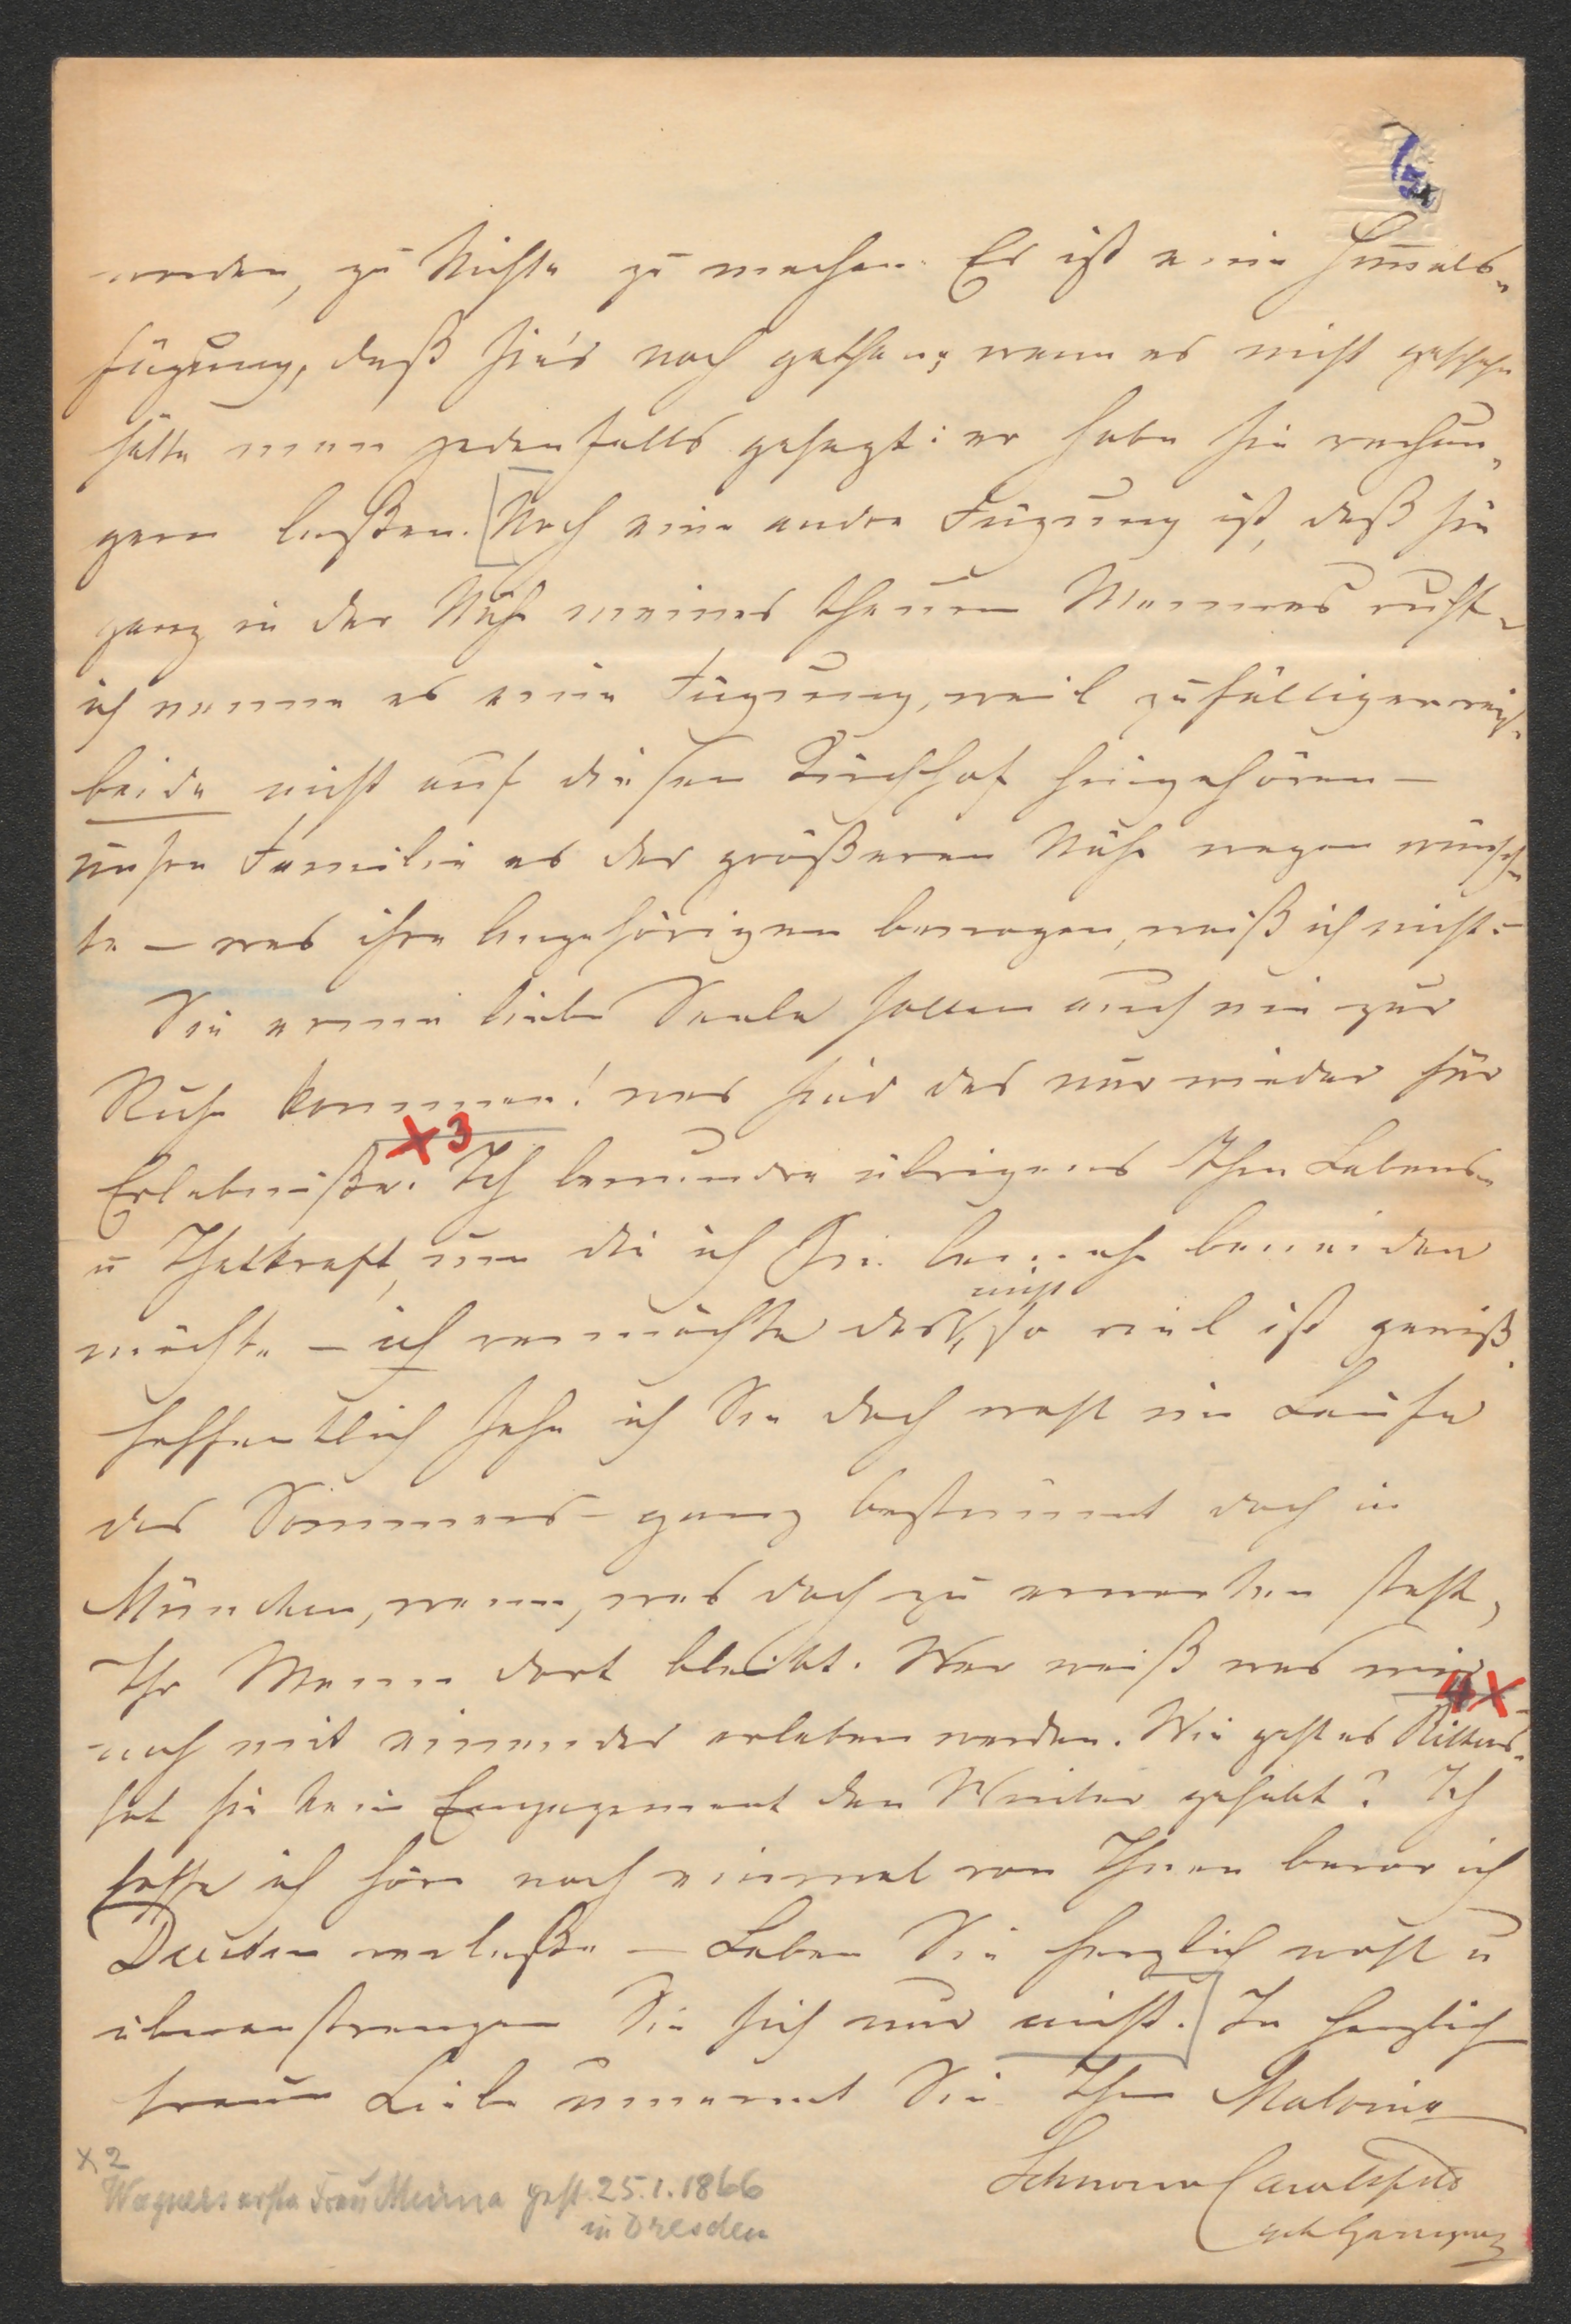 worden, zu Nichte zu machen. Es ist eine Himels-
fügung, daß sie's noch gethan; wenn es nicht geschehen
hätte man jedenfalls gesagt: er habe sie verhun-
gern laßen. Noch eine andre Fügung ist, daß sie
ganz in der Näh meines theuren Mannes ruht -
ich nenne es eine Fügung, weil zufälligerweise
beide nicht auf diesen Kirchhof hingehören —
unsre Familie es der größeren Nähe wegen wünsch-
te — was ihre Angehörigen bewogen, weiß ich nicht. -
Sie arme liebe Seele sollen auch nie zur
Ruhe kommen! was sind das nur wieder für
x 3
Erlebniße. Ich bewundre übrigens Ihre Lebens-
u Thatkraft, um die ich Sie beinahe beneiden
nicht
möchte — ich vermöchte das, so viel ist gewiß.
Hoffentlich sehe ich Sie doch wohl im Laufe
des Sommers - ganz bestimmt doch in
München, wenn, was doch zu erwarten steht,
Ihr Mann dort bleibt. Wer weiß was wir
4 x
noch mit einander erleben werden. Wie geht es Ritters -
hat sie kein Engagement den Winter gehabt? Ich
hoffe ich höre noch einmal von Ihnen bevor ich
Dresden verlaße — Leben Sie herzlich wohl u
überanstrengen Sie sich nur nicht. In herzlich
treuer Liebe umarmt Sie Ihre Malvina
Schnorr Carolsfeld
geb Garrigues
x 2
Wagners erste Frau Minna gest. 25.1.1866
in Dresden